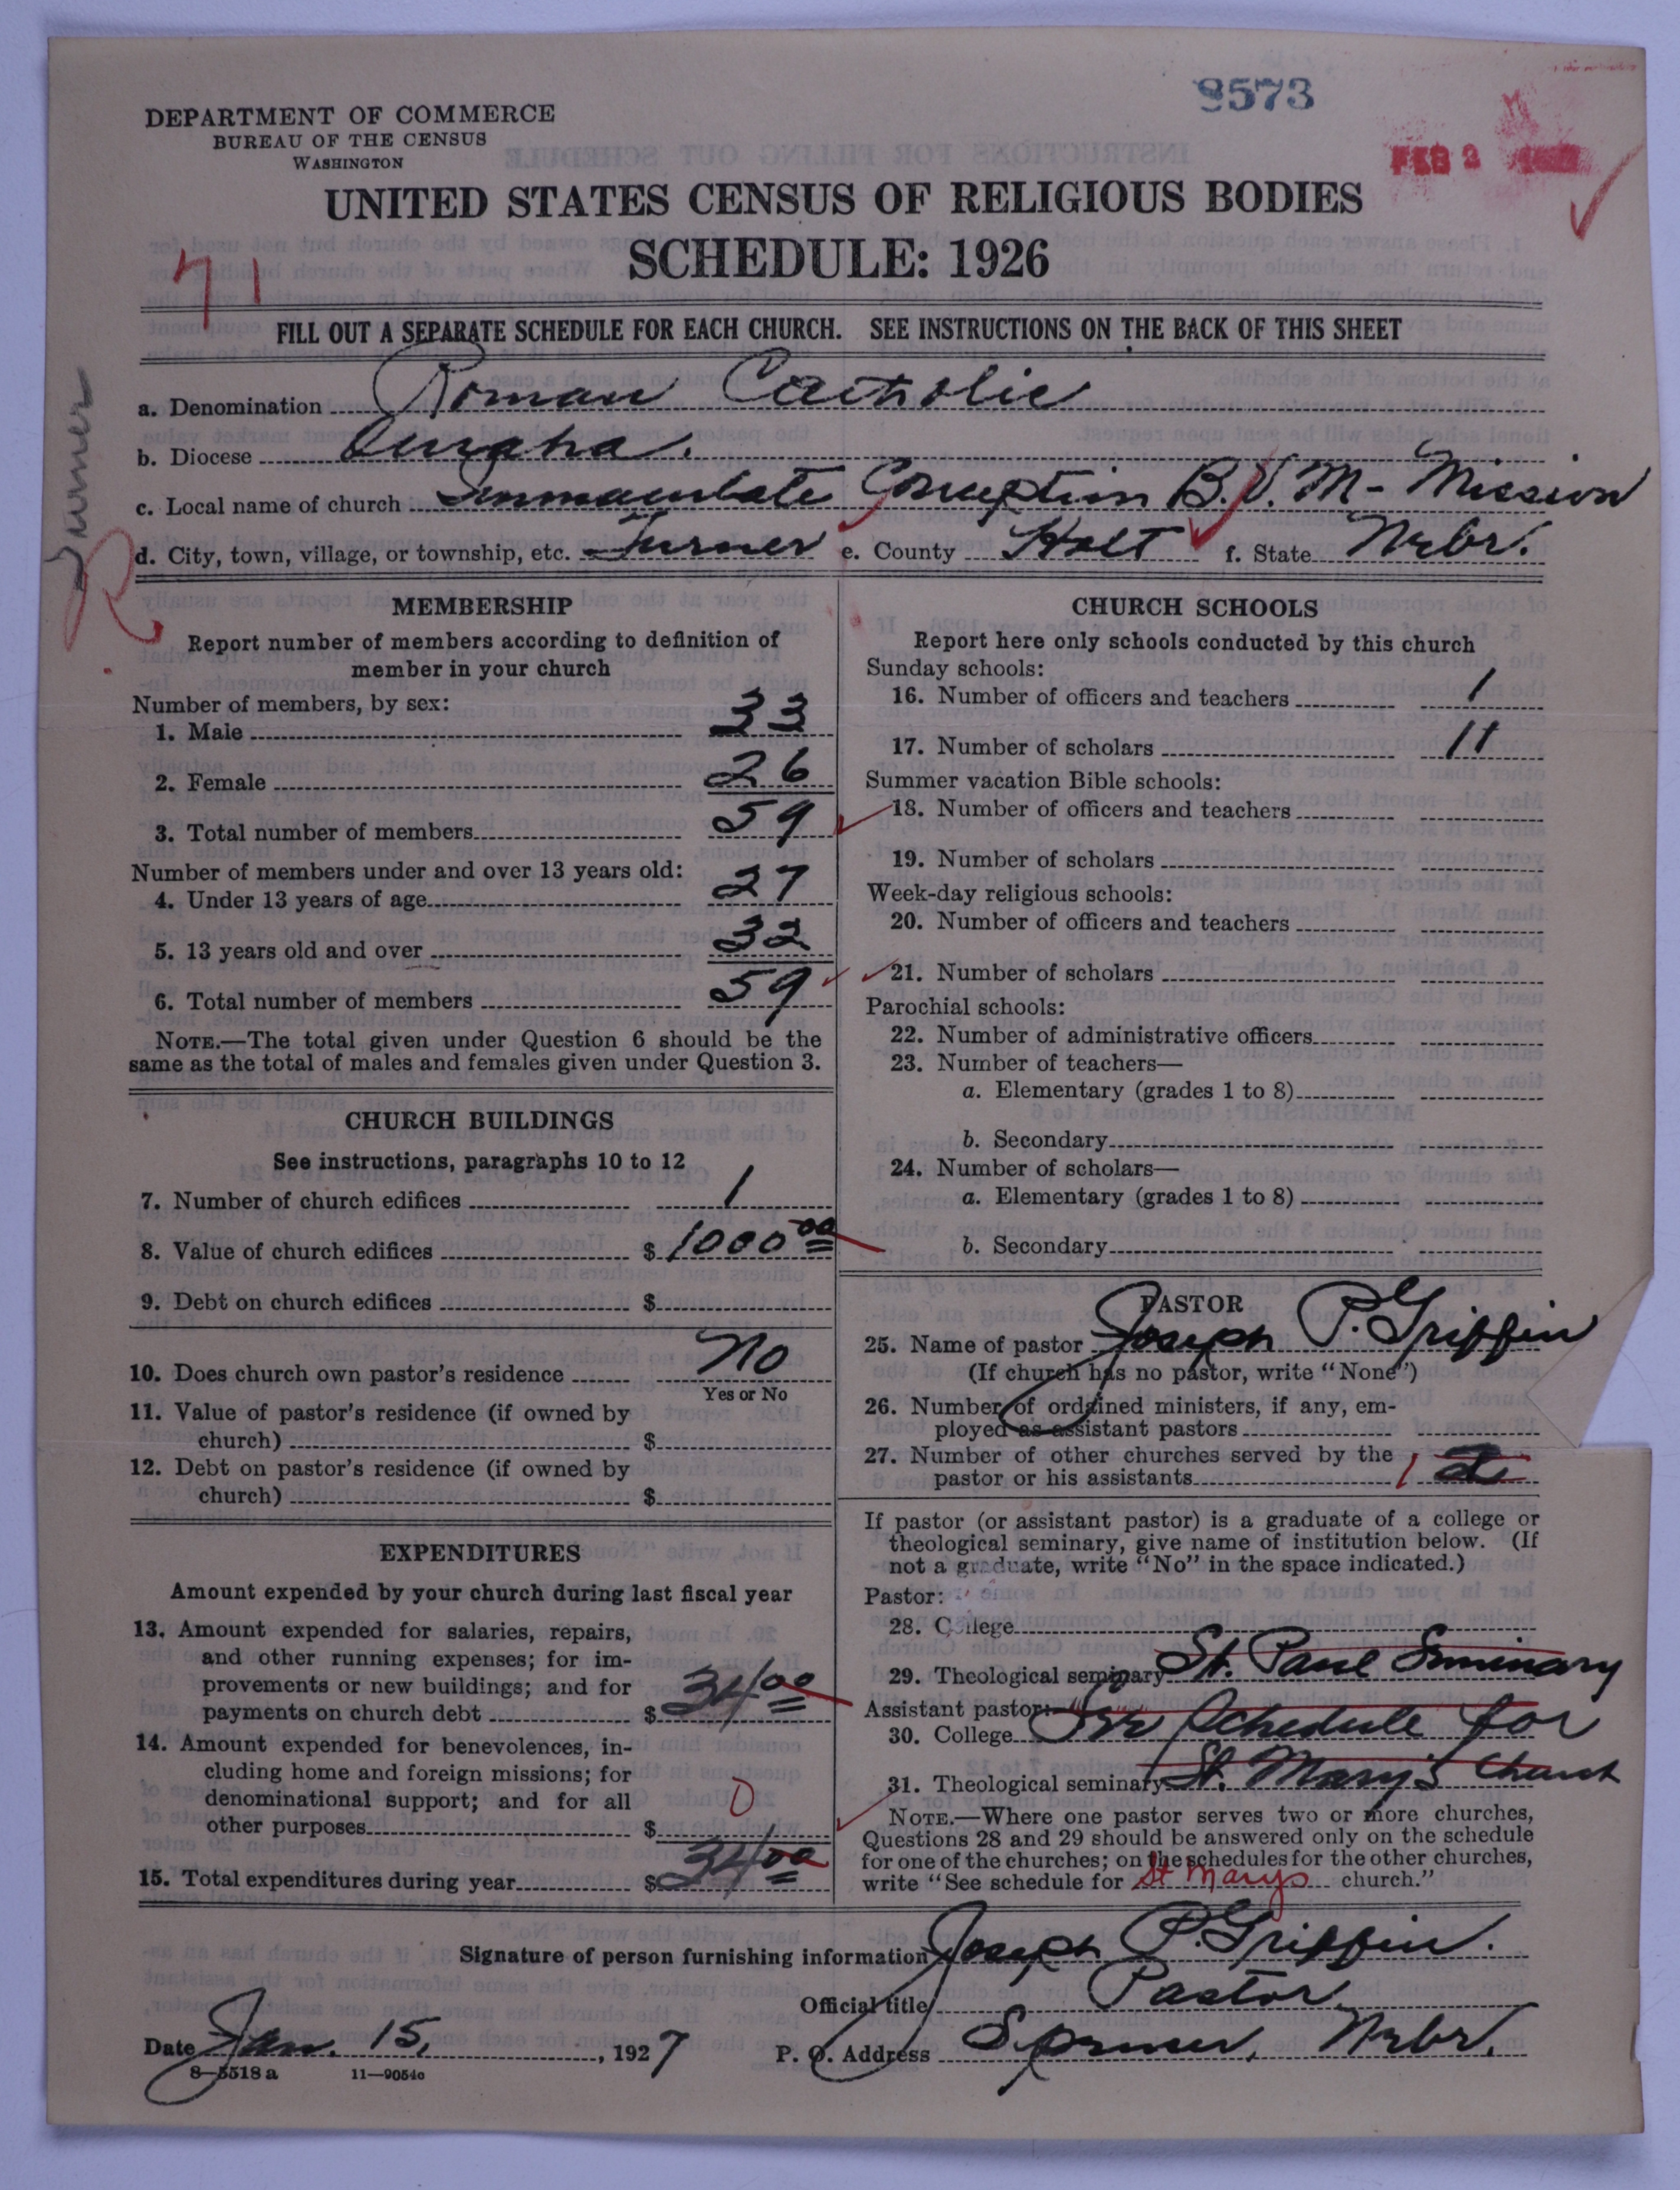 8573
DEPARTMENT OF COMMERCE
BUREAU OF THE CENSUS
WASHINGTON
FEB 2
UNITED STATES CENSUS OF RELIGIOUS BODIES
SCHEDULE: 1926
71
FILL OUT A SEPARATE SCHEDULE FOR EACH CHURCH. SEE INSTRUCTIONS ON THE BACK OF THIS SHEET
Turner
R
a. Denomination Roman Catholic
b. Diocese Omaha.
c. Local name of church Immaculate Conception B.V.M- Mission
d. City, town, village, or township, etc. Turner e. County Holt f. State Nebr.
MEMBERSHIP
Report number of members according to definition of
member in your church
Number of members, by sex:
1. Male 33
2. Female 26
3. Total number of members 59
Number of members under and over 13 years old:
4. Under 13 years of age 27
5. 13 years old and over 32
6. Total number of members 59
NOTE.—The total given under Question 6 should be the
same as the total of males and females given under Question 3.
CHURCH BUILDINGS
See instructions, paragraphs 10 to 12
7. Number of church edifices 1
8. Value of church edifices $ 1000 00
9. Debt on church edifices $
10. Does church own pastor's residence No
Yes or No
11. Value of pastor's residence (if owned by
church) $
12. Debt on pastor's residence (if owned by
church) $
EXPENDITURES
Amount expended by your church during last fiscal year
13. Amount expended for salaries, repairs,
and other running expenses; for im-
provements or new buildings; and for
payments on church debt $ 34 00
14. Amount expended for benevolences, in-
cluding home and foreign missions; for
denominational support; and for all
other purposes $ 0
15. Total expenditures during year $ 34 00
CHURCH SCHOOLS
Report here only schools conducted by this church
Sunday schools:
16. Number of officers and teachers 1
17. Number of scholars 11
Summer vacation Bible schools:
18. Number of officers and teachers
19. Number of scholars
Week-day religious schools:
20. Number of officers and teachers
21. Number of scholars
Parochial schools:
22. Number of administrative officers
23. Number of teachers—
a. Elementary (grades 1 to 8)
b. Secondary
24. Number of scholars—
a. Elementary (grades 1 to 8)
b. Secondary
PASTOR
25. Name of pastor Joseph P. Griffin
(If church has no pastor, write "None")
26. Number of ordained ministers, if any, em-
ployed as assistant pastors
27. Number of other churches served by the
pastor or his assistants 1 2
If pastor (or assistant pastor) is a graduate of a college or
theological seminary, give name of institution below. (If
not a graduate, write "No" in the space indicated.)
Pastor:
28. College
29. Theological seminary St. Paul Seminary
Assistant pastor:
30. College See Schedule for
31. Theological seminary St. Mary's Church
NOTE.—Where one pastor serves two or more churches,
Questions 28 and 29 should be answered only on the schedule
for one of the churches; on the schedules for the other churches,
write "See schedule for St Marys church."
Signature of person furnishing information Joseph P. Griffin.
Official title Pastor
Date Jan. 15, 1927 P. O. Address Spencer, Nebr.
8—5518 a 11—9054c